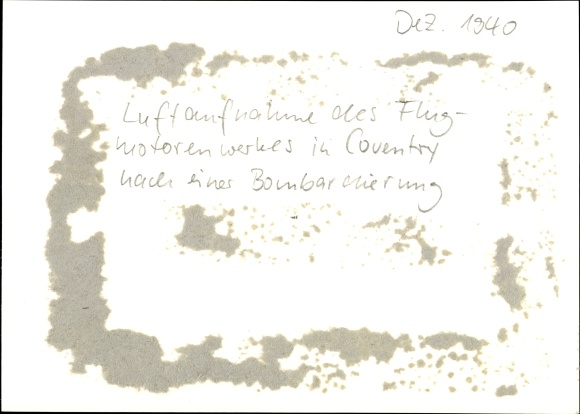 Dez. 1940
Luftaufnahme des Flug-
motorenwerkes in Coventry
nach einer Bombardierung